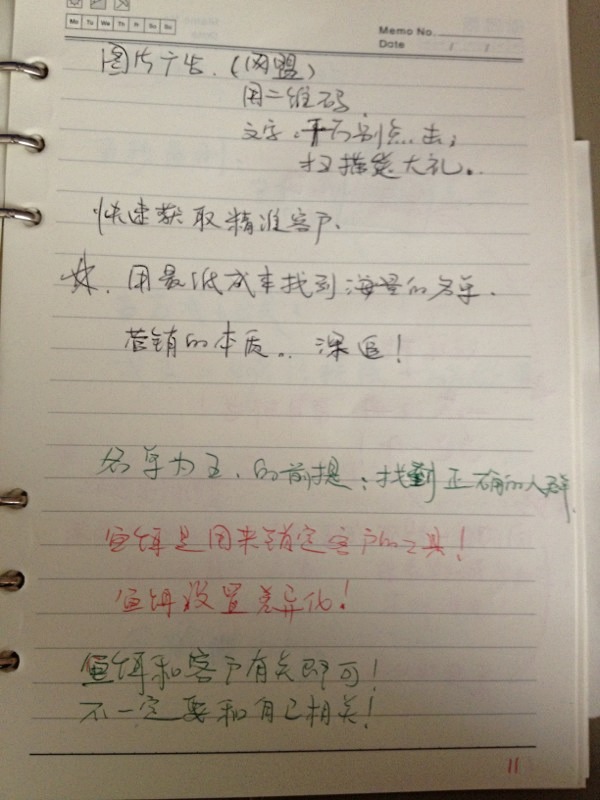 Mo Tu We Th Fr Sa Su
Memo No.
Date / /
图片广告.（网盟）
用二维码
文字:千万别点击;
扫描送大礼。
快速获取精准客户.
用最低成本找到海量的名单.
营销的本质.. 深追！
名单为王.的前提:找到正确的人群
鱼饵是用来锁定客户的工具！
鱼饵设置差异化！
鱼饵和客户有关即可！
不一定要和自己相关！
11